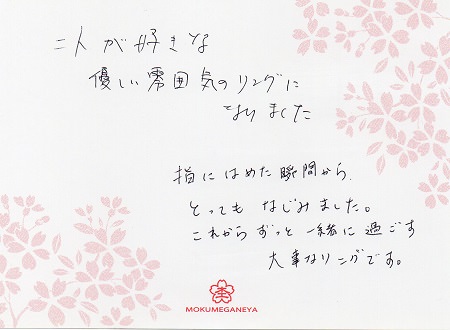 二人が好きな
優しい雰囲気のリングに
なりました
指にはめた瞬間から、
とってもなじみました。
これからずっと一緒に過ごす
大事なリングです。
MOKUMEGANEYA